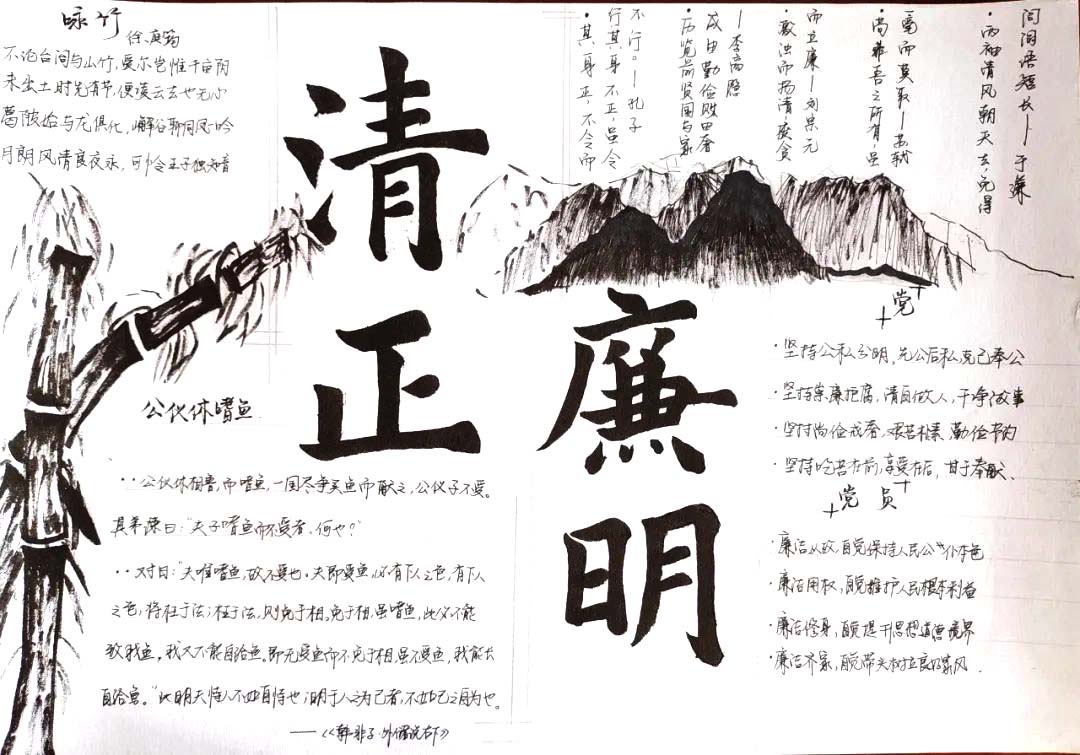 咏竹
徐庭筠
不论台阁与山林，爱尔岂惟千亩阴
未出土时先有节，便凌云去也无心
葛陂始与龙俱化，嶰谷聊同凤一吟
月朗风清良夜永，可怜王子独知音
清
正
廉
明
闾阎话短长——于谦
·两袖清风朝天去，免得
毫而莫取——苏轼
·苟非吾之所有，虽
而立廉——刘禹元
·激浊而扬清，废贪
——李商隐
成由勤俭败由奢
·历览前贤国与家
不行。——孔子
行其身不正，虽令
·其身正，不令而
公仪休嗜鱼
公仪休相鲁，而嗜鱼，一国尽争买鱼而献之，公仪子不受。
其弟谏曰：“夫子嗜鱼而不受者，何也？”
对曰：“夫唯嗜鱼，故不受也。夫即受鱼，必有下人之色，有下人
之色，将枉于法；枉于法，则免于相。免于相，虽嗜鱼，此必不能
致我鱼，我又不能自给鱼。即无受鱼而不免于相，虽不受鱼，我能长
自给鱼。”此明夫恃人不如自恃也；明于人之为己者，不如己之自为也。
——《韩非子·外储说右下》
党
·坚持公私分明，先公后私，克己奉公
·坚持崇廉拒腐，清白做人，干净做事
·坚持尚俭戒奢，艰苦朴素，勤俭节约
·坚持吃苦在前，享受在后，甘于奉献
党员
·廉洁从政，自觉保持人民公仆本色
·廉洁用权，自觉维护人民根本利益
·廉洁修身，自觉提升思想道德境界
·廉洁齐家，自觉带头树立良好家风